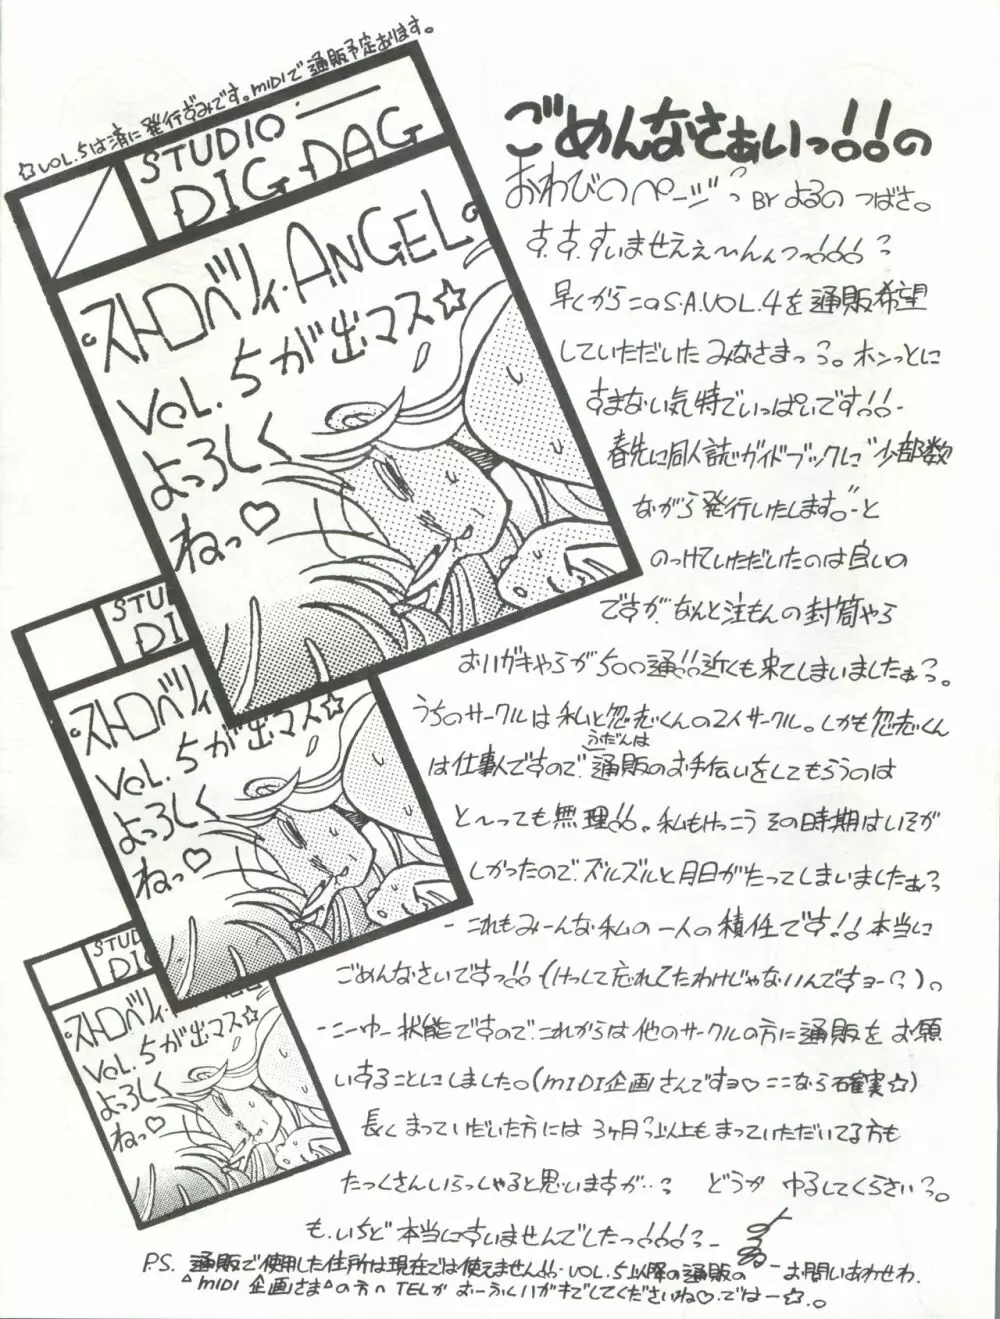 ☆VOL.5は済に発行ずみです。MIDIで通販予定あります。
STUDIO
DIG DAG
ストロベリィ・ANGEL
VOL.5が出マス☆
よっろしく
ねっ♡
STU
DI
ストロベリィ
VOL.5が出マス☆
よっろしく
ねっ♡
STUD
DIG
ストロベリィ
VOL.5が出マス☆
よっろしく
ねっ♡
ごめんなさぁいっ!!の
おわびのページ BY よるの つばさ。
す、す、すいませえぇ〜んんっっ!!!
早くからこのS・A.VOL.4を通販希望
していただいたみなさまっ。ホンっとに
すまない気特でいっぱいです!!
春先に同人誌ガイドブックに"少部数
ながら発行いたします"と
のっけていただいたのは良いの
ですが、なんと注もんの封筒やら
おハガキやらが500通!!近くも来てしまいましたぁっ。
うちのサークルは私と怨念くんの2人サークル。しかも怨念くん
は仕事人ですので、ふだんは通販のお手伝いをしてもらうのは
と〜っても無理!!。私もけっこうその時期はいそが
しかったので、ズルズルと月日がたってしまいましたぁっ
これもみーんな私の一人の積任です!!本当に
ごめんなさいですっ!!(けっして忘れてたわけじゃないんですョー)。
こーゆー状態ですので、これからは他のサークルの方に通販をお願
いすることにしました。(MIDI企画さんですョ♡ここなら確実☆)
長くまっていだいた方には3ヶ月以上もまっていただいてる方も
たっくさんいらっしゃると思いますが…っ どうか ゆるしてくださいっ。
も、いちど本当にすいませんでしたっ!!!
P.S. 通販で使用した住所は現在では使えません!!。VOL.5以降の通販の お問いあわせわ、
"MIDI企画さま"の方へTELか おーふくハガキでしてくださいね♡では—☆。